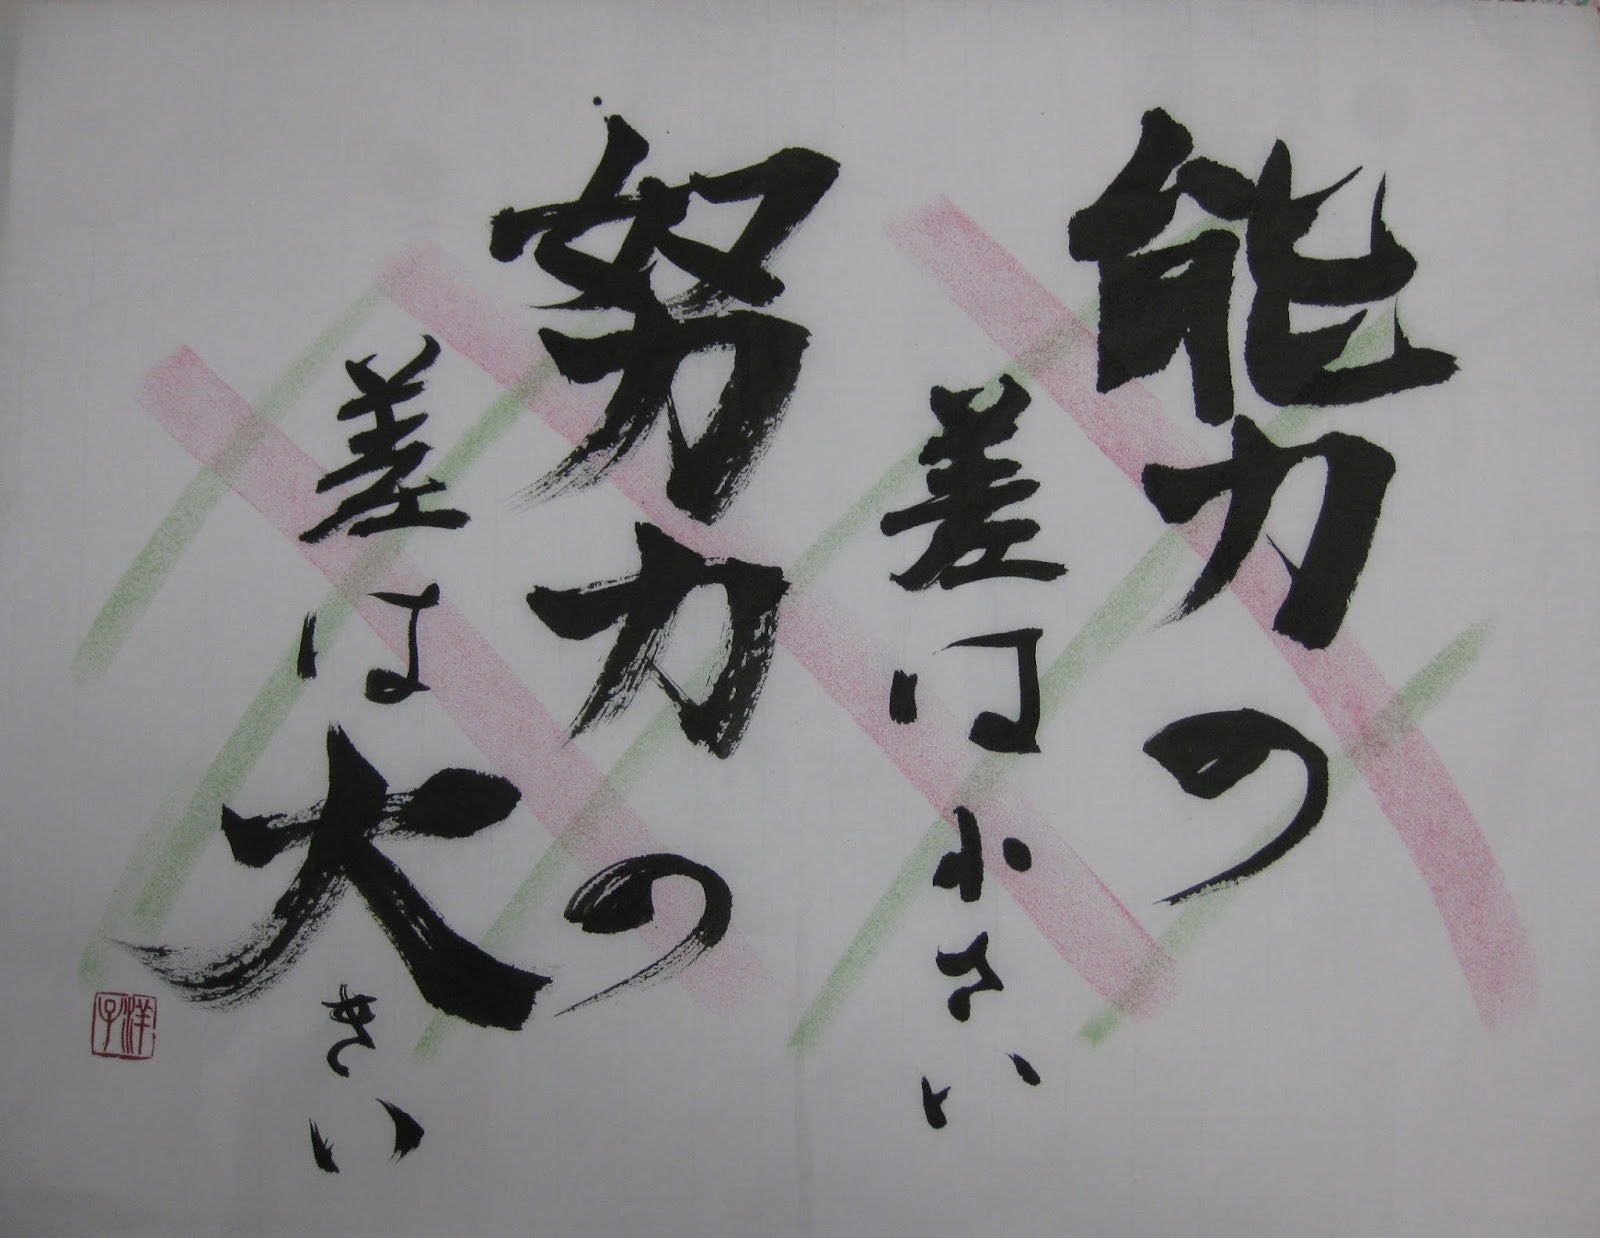 能力の
差は小さい
努力の
差は大きい
洋子